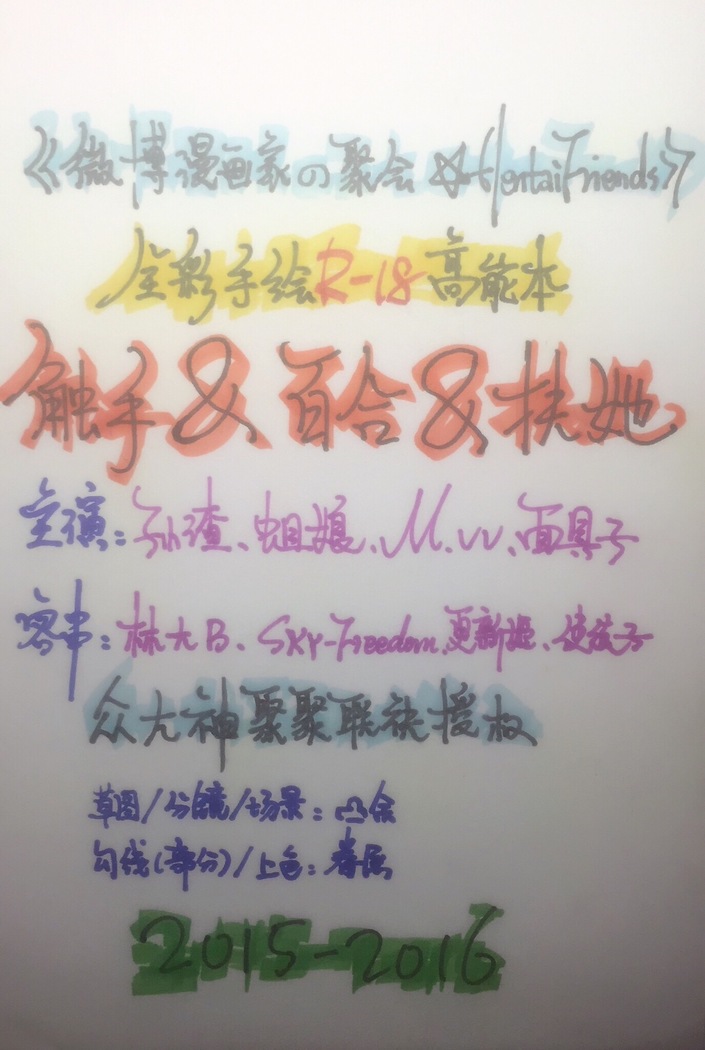 《微博漫画家の聚会☆HentaiFriends》
全彩手绘R-18高能本
触手&百合&扶她
主演：孙渣、蛆娘、M.W、面具子
客串：林大B、SKY-Freedom、更新姬、使孩子
众大神聚聚联袂授权
草图/分镜/场景：凸余
勾线(部分)/上色：
2015-2016